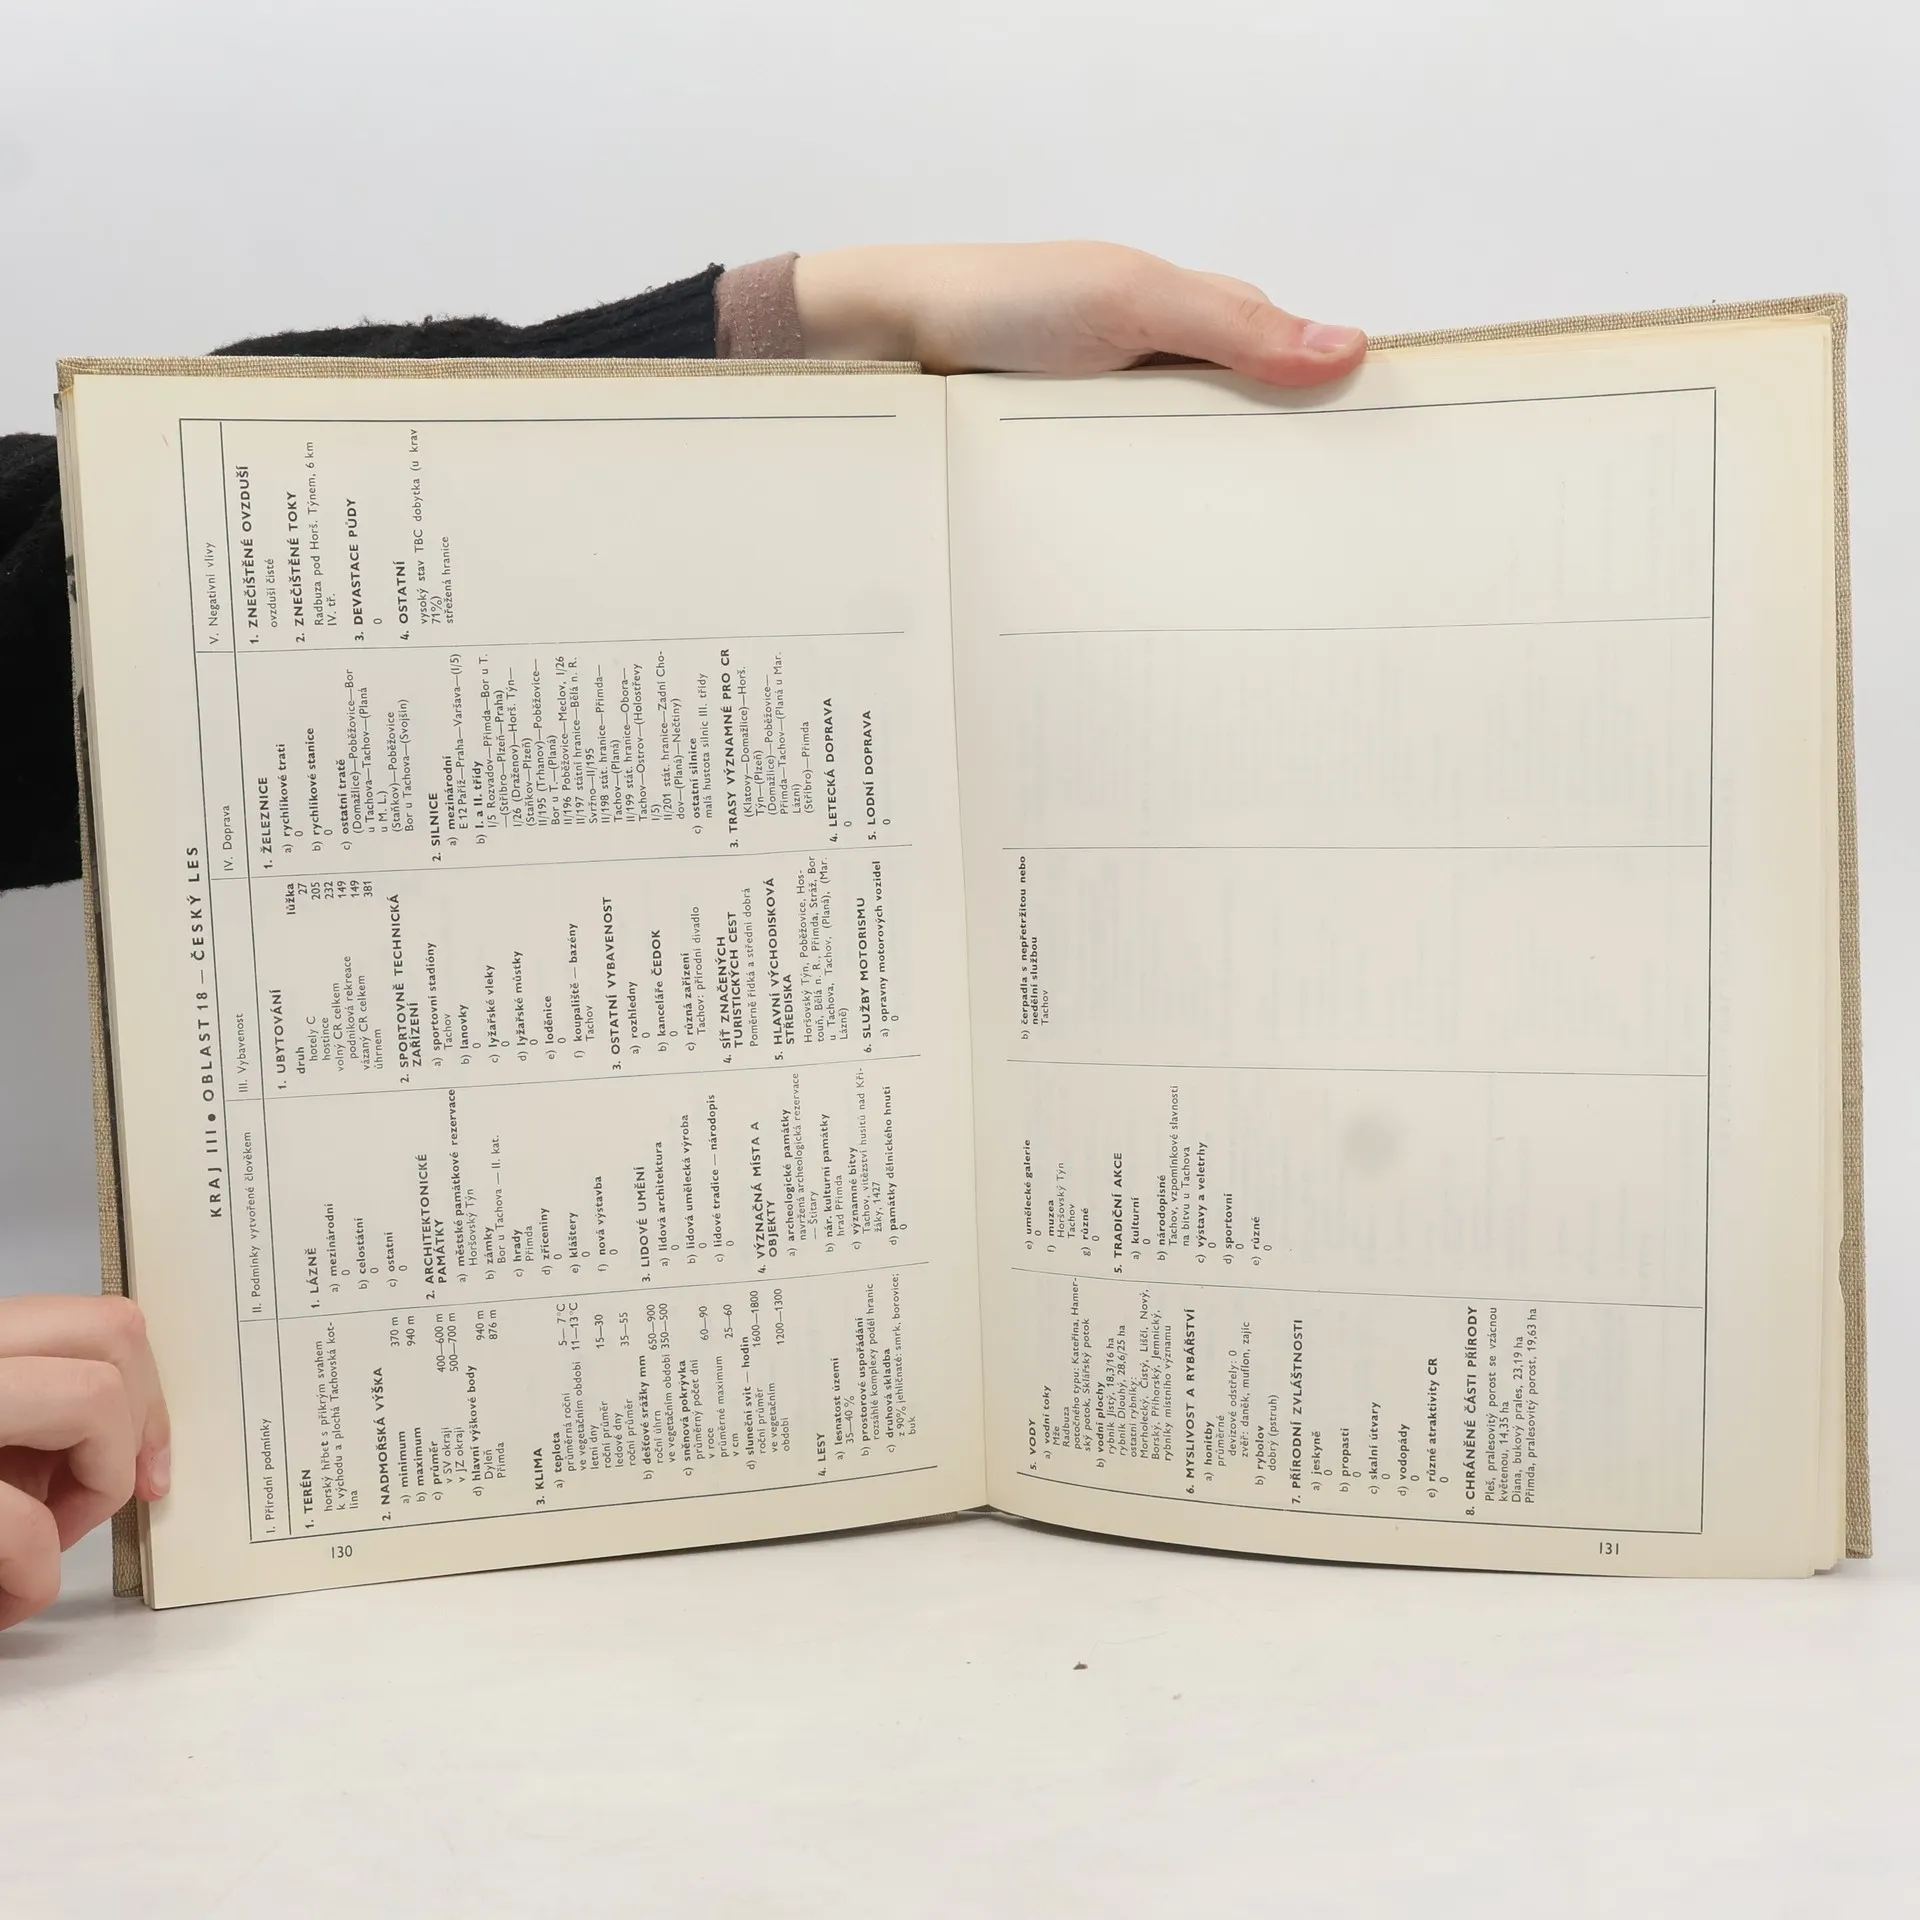 KRAJ III • OBLAST 18 — ČESKÝ LES
I. Přírodní podmínky
1. TERÉN
horský hřbet s příkrým svahem
k východu a plochá Tachovská kot-
lina
2. NADMOŘSKÁ VÝŠKA
a) minimum 370 m
b) maximum 940 m
c) průměr
v SV okraji 400—600 m
v JZ okraji 500—700 m
d) hlavní výškové body
Dyleň 940 m
Přimda 876 m
3. KLIMA
a) teplota
průměrná roční 5— 7°C
ve vegetačním období 11—13°C
letní dny
roční průměr 15—30
ledové dny
roční průměr 35—55
b) dešťové srážky mm
roční úhrn 650—900
ve vegetačním období 350—500
c) sněnová pokrývka
průměrný počet dní
v roce 60—90
průměrné maximum
v cm 25—60
d) sluneční svit — hodin
roční průměr 1600—1800
ve vegetačním
období 1200—1300
4. LESY
a) lesnatost území
35—40 %
b) prostorové uspořádání
rozsáhlé komplexy podél hranic
c) druhová skladba
z 90% jehličnaté: smrk, borovice;
buk
II. Podmínky vytvořené člověkem
1. LÁZNĚ
a) mezinárodní
0
b) celostátní
0
c) ostatní
0
2. ARCHITEKTONICKÉ
PAMÁTKY
a) městské památkové rezervace
Horšovský Týn
b) zámky
Bor u Tachova — II. kat.
c) hrady
Přimda
d) zříceniny
0
e) kláštery
0
f) nová výstavba
0
3. LIDOVÉ UMĚNÍ
a) lidová architektura
0
b) lidová umělecká výroba
0
c) lidové tradice — národopis
0
4. VÝZNAČNÁ MÍSTA A
OBJEKTY
a) archeologické památky
navržená archeologická rezervace
— Štítary
b) nár. kulturní památky
hrad Přimda
c) významné bitvy
Tachov, vítězství husitů nad Kři-
žáky, 1427
d) památky dělnického hnutí
0
III. Vybavenost
1. UBYTOVÁNÍ
druh lůžka
hotely C 27
hostince 205
volný CR celkem 232
podniková rekreace 149
vázaný CR celkem 149
úhrnem 381
2. SPORTOVNĚ TECHNICKÁ
ZAŘÍZENÍ
a) sportovní stadióny
Tachov
b) lanovky
0
c) lyžařské vleky
0
d) lyžařské můstky
0
e) loděnice
0
f) koupaliště — bazény
Tachov
3. OSTATNÍ VYBAVENOST
a) rozhledny
0
b) kanceláře ČEDOK
0
c) různá zařízení
Tachov: přírodní divadlo
4. SÍŤ ZNAČENÝCH
TURISTICKÝCH CEST
Poměrně řídká a střední dobrá
5. HLAVNÍ VÝCHODISKOVÁ
STŘEDISKA
Horšovský Týn, Poběžovice, Hos-
touň, Bělá n. R., Přimda, Stráž, Bor
u Tachova, Tachov, (Planá), (Mar.
Lázně)
6. SLUŽBY MOTORISMU
a) opravny motorových vozidel
0
IV. Doprava
1. ŽELEZNICE
a) rychlíkové trati
0
b) rychlíkové stanice
0
c) ostatní tratě
(Domažlice)—Poběžovice—Bor
u Tachova—Tachov—(Planá
u M. L.)
(Staňkov)—Poběžovice
Bor u Tachova—(Svojšín)
2. SILNICE
a) mezinárodní
E 12 Paříž—Praha—Varšava—(I/5)
b) I. a II. třídy
I/5 Rozvadov—Přimda—Bor u T.
—(Stříbro—Plzeň—Praha)
I/26 (Draženov)—Horš. Týn—
(Staňkov—Plzeň)
II/195 (Trhanov)—Poběžovice—
Bor u T.—(Planá)
II/196 Poběžovice—Meclov, I/26
II/197 státní hranice—Bělá n. R.
Svržno—II/195
II/198 stát. hranice—Přimda—
Tachov—(Planá)
II/199 stát. hranice—Obora—
Tachov—Ostrov—(Holostřevy
I/5)
II/201 stát. hranice—Zadní Cho-
dov—(Planá)—Nečtiny)
c) ostatní silnice
malá hustota silnic III. třídy
3. TRASY VÝZNAMNÉ PRO CR
(Klatovy—Domažlice)—Horš.
Týn—(Plzeň)
(Domažlice)—Poběžovice—
Přimda—Tachov—(Planá u Mar.
Lázní)
(Stříbro)—Přimda
4. LETECKÁ DOPRAVA
0
5. LODNÍ DOPRAVA
0
V. Negativní vlivy
1. ZNEČIŠTĚNÉ OVZDUŠÍ
ovzduší čisté
2. ZNEČIŠTĚNÉ TOKY
Radbuza pod Horš. Týnem, 6 km
IV. tř.
3. DEVASTACE PŮDY
0
4. OSTATNÍ
vysoký stav TBC dobytka (u krav
71%)
střežená hranice
130
5. VODY
a) vodní toky
Mže
Radbuza
potočného typu: Kateřina, Hamer-
ský potok, Sklářský potok
b) vodní plochy
rybník Jistý, 18,3/16 ha
rybník Dlouhý, 28,6/25 ha
ostatní rybníky:
Morholecký, Čistý, Liščí, Nový,
Borský, Příhorský, Jemnický,
rybníky místního významu
6. MYSLIVOST A RYBÁŘSTVÍ
a) honitby
průměrné
devizové odstřely: 0
zvěř: daněk, muflon, zajíc
b) rybolov
dobrý (pstruh)
7. PŘÍRODNÍ ZVLÁŠTNOSTI
a) jeskyně
0
b) propasti
0
c) skalní útvary
0
d) vodopády
0
e) různé atraktivity CR
0
8. CHRÁNĚNÉ ČÁSTI PŘÍRODY
Pleš, pralesovitý porost se vzácnou
květenou, 14,35 ha
Diana, bukový prales, 23,19 ha
Přimda, pralesovitý porost, 19,63 ha
e) umělecké galerie
0
f) muzea
Horšovský Týn
Tachov
g) různé
0
5. TRADIČNÍ AKCE
a) kulturní
0
b) národopisné
Tachov, vzpomínkové slavnosti
na bitvu u Tachova
c) výstavy a veletrhy
0
d) sportovní
0
e) různé
0
b) čerpadla s nepřetržitou nebo
nedělní službou
Tachov
131